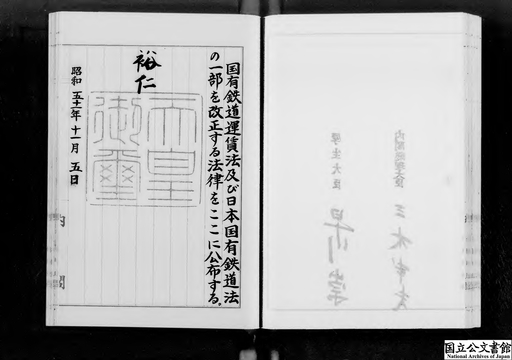 国有鉄道運賃法及び日本国有鉄道法
の一部を改正する法律をここに公布する。
裕仁
天皇
御璽
昭和五十一年十一月五日
内閣
国立公文書館
National Archives of Japan